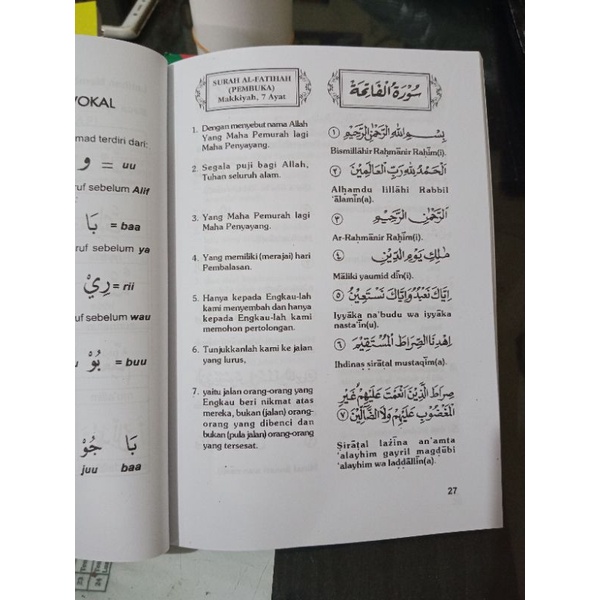 VOKAL
mad terdiri dari:
و = uu
ruf sebelum Alif
بَا = baa
ruf sebelum ya
رِيْ = rii
uf sebelum wau
بُوْ = buu
جُوْ بَا
juu baa
SURAH AL-FATIHAH
(PEMBUKA)
Makkiyah, 7 Ayat
1. Dengan menyebut nama Allah
Yang Maha Pemurah lagi
Maha Penyayang.
2. Segala puji bagi Allah,
Tuhan seluruh alam.
3. Yang Maha Pemurah lagi
Maha Penyayang.
4. Yang memiliki (merajai) hari
Pembalasan.
5. Hanya kepada Engkau-lah
kami menyembah dan hanya
kepada Engkau-lah kami
memohon pertolongan.
6. Tunjukkanlah kami ke jalan
yang lurus,
7. yaitu jalan orang-orang yang
Engkau beri nikmat atas
mereka, bukan (jalan) orang-
orang yang dibenci dan
bukan (pula jalan) orang-orang
yang tersesat.
سُوْرَةُ الْفَاتِحَةِ
بِسْمِ اللهِ الرَّحْمٰنِ الرَّحِيْمِ ١
Bismillāhir Raḥmānir Raḥīm(i).
اَلْحَمْدُ لِلّٰهِ رَبِّ الْعَالَمِيْنَ ٢
Alḥamdu lillāhi Rabbil
'ālamīn(a).
اَلرَّحْمٰنِ الرَّحِيْمِ ٣
Ar-Raḥmānir Raḥīm(i).
مٰلِكِ يَوْمِ الدِّيْنِ ٤
Māliki yaumid dīn(i).
اِيَّاكَ نَعْبُدُ وَاِيَّاكَ نَسْتَعِيْنُ ٥
Iyyāka na'budu wa iyyāka
nasta'īn(u).
اِهْدِنَا الصِّرَاطَ الْمُسْتَقِيْمَ ٦
Ihdinaṣ ṣirāṭal mustaqīm(a).
صِرَاطَ الَّذِيْنَ اَنْعَمْتَ عَلَيْهِمْ غَيْرِ
الْمَغْضُوْبِ عَلَيْهِمْ وَلَا الضَّالِّيْنَ ٧
Ṣirāṭal lażīna an'amta
'alayhim gayril magḍūbi
'alayhim wa laḍḍāllīn(a).
27